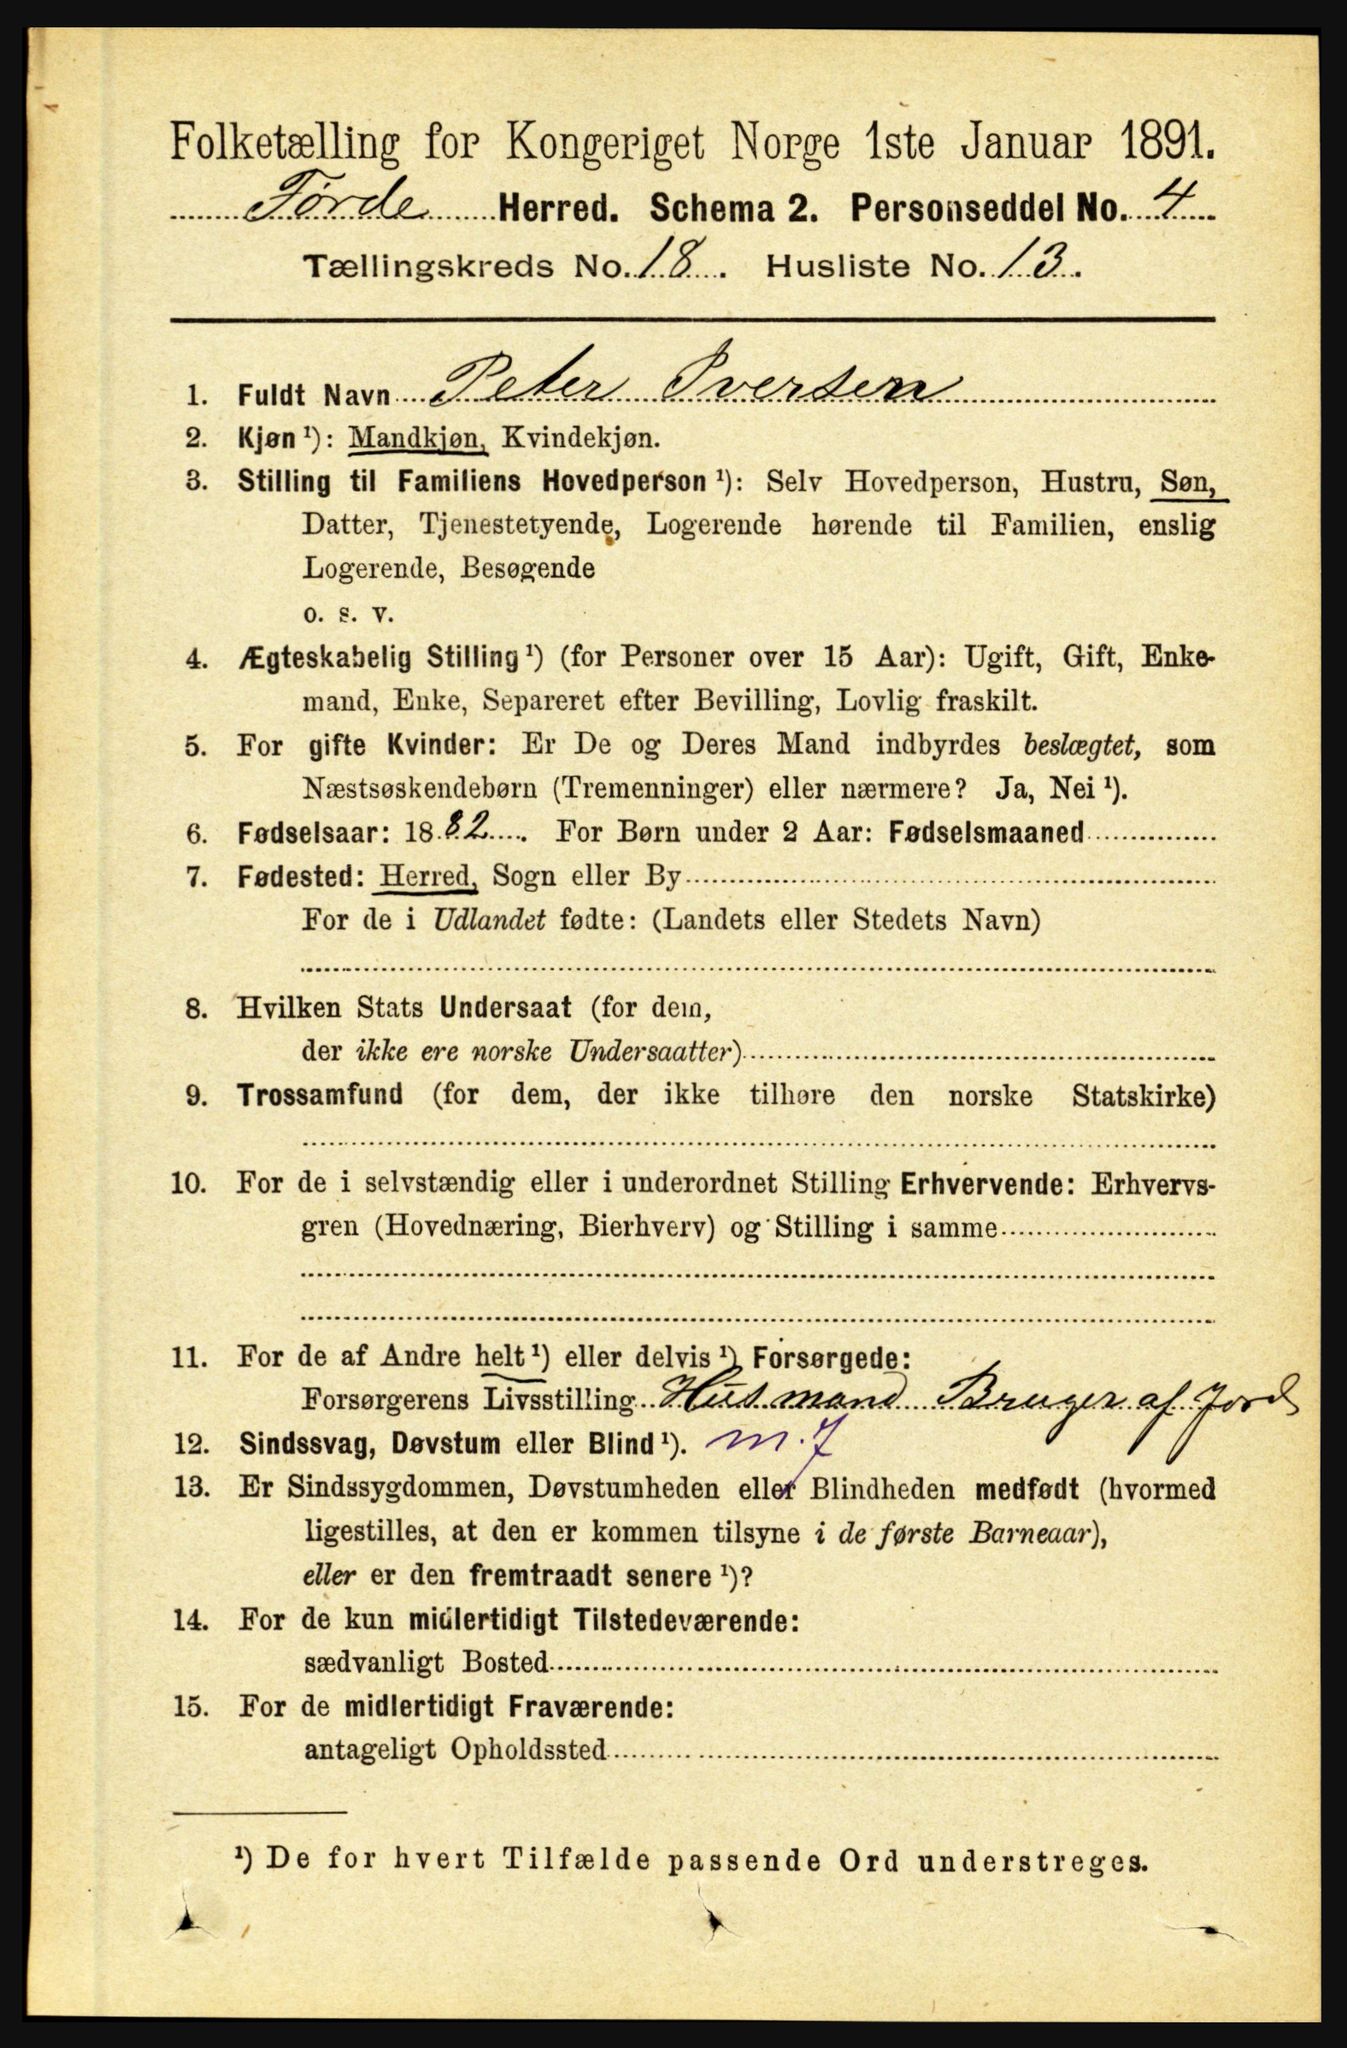 Folketælling for Kongeriget Norge 1ste Januar 1891.
Førde Herred. Schema 2. Personseddel No. 4
Tællingskreds No. 18. Husliste No. 13.
1. Fuldt Navn Peter Iversen
2. Kjøn ¹): Mandkjøn, Kvindekjøn.
3. Stilling til Familiens Hovedperson ¹): Selv Hovedperson, Hustru, Søn,
Datter, Tjenestetyende, Logerende hørende til Familien, enslig
Logerende, Besøgende
o. s. v.
4. Ægteskabelig Stilling ¹) (for Personer over 15 Aar): Ugift, Gift, Enke-
mand, Enke, Separeret efter Bevilling, Lovlig fraskilt.
5. For gifte Kvinder: Er De og Deres Mand indbyrdes beslægtet, som
Næstsøskendebørn (Tremenninger) eller nærmere? Ja, Nei ¹).
6. Fødselsaar: 1882. For Børn under 2 Aar: Fødselsmaaned
7. Fødested: Herred, Sogn eller By
For de i Udlandet fødte: (Landets eller Stedets Navn)
8. Hvilken Stats Undersaat (for dem,
der ikke ere norske Undersaatter)
9. Trossamfund (for dem, der ikke tilhøre den norske Statskirke)
10. For de i selvstændig eller i underordnet Stilling Erhvervende: Erhvervs-
gren (Hovednæring, Bierhverv) og Stilling i samme
11. For de af Andre helt ¹) eller delvis ¹) Forsørgede:
Forsørgerens Livsstilling Husmand Bruger af Jord
12. Sindssvag, Døvstum eller Blind ¹). m. 7
13. Er Sindssygdommen, Døvstumheden eller Blindheden medfødt (hvormed
ligestilles, at den er kommen tilsyne i de første Barneaar),
eller er den fremtraadt senere ¹)?
14. For de kun midlertidigt Tilstedeværende:
sædvanligt Bosted
15. For de midlertidigt Fraværende:
antageligt Opholdssted
¹) De for hvert Tilfælde passende Ord understreges.